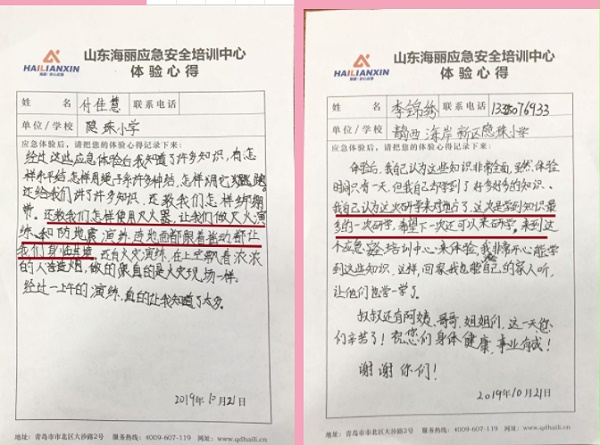 HAILIANXIN
山东海丽应急安全培训中心
体验心得
姓 名 付佳慧 联系电话
单位/学校 隐珠小学
应急体验后,请把您的体验心得记录下来:
经过这些应急体验后我知道了许多知识,有怎
样水平结,怎样用绳子系许多种结,怎样
还给我们讲了许多知识,还教我们怎样绑绷
带。还教我们怎样使用灭火器,让我们做灭火演
练和防地震演习,连地面都跟着
我们身临其境,还有火灾演练,在上空飘着浓浓
的人造烟,做的像真的是火灾现场一样。
经过一上午的演练,真的让我知道了太多。
2019年10月21日
地址:青岛市市北区大沙路2号 服务热线:4009-607-119 网址:www.qdhaili.cn
HAILIANXIN
山东海丽应急安全培训中心
体验心得
姓 名 李锦 联系电话
单位/学校 西海岸新区隐珠小学
应急体验后,请把您的体验心得记录下来:
体验后,我自己认为这些知识非常全面,虽然体验
时间只有一天,但我自己学到了好多好多的知识、
我自己认为这次研学来对地方了,这次是学到知识最
多的一次研学,希望下一次还可以来研学。来到这
个应急安全培训中心来体验,我非常开心能学
到这些知识,这样,回家我也能自己的家人听,
让他们也学一学了。
叔叔还有阿姨、哥哥、姐姐们,这一天您
们辛苦了!祝您们身体健康,事业有成!
谢谢你们!
2019年10月21日
地址:青岛市市北区大沙路2号 服务热线:4009-607-119 网址:www.qdhaili.cn